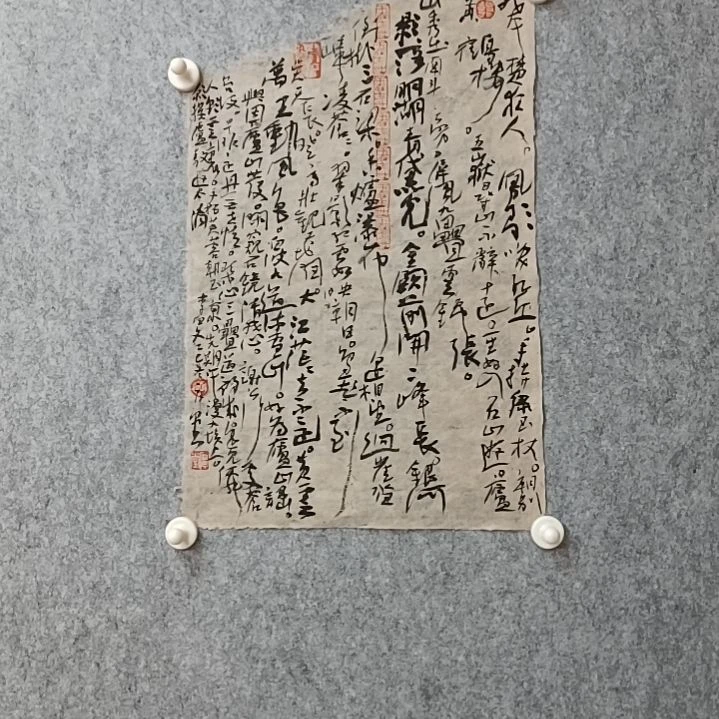 本楚狂人。鳳歌笑孔丘。手持綠玉杖。朝別
黃鶴樓。五嶽尋山不辭遠。一生好入名山遊。廬
山秀出南斗旁。屏風九疊雲錦張。
影落明湖青黛光。金闕前開二峰長。銀河
倒挂三石梁。香爐瀑布遙相望。迴崖沓
嶂凌蒼蒼。翠影紅霞映朝日。鳥飛不到
吳天長。登高壯觀天地間。大江茫茫去不還。黃雲
萬里動風色。白波九道流雪山。好為廬山謠。
興因廬山發。閑窺石鏡清我心。謝公行處蒼
苔沒。早服還丹無世情。琴心三疊道初成。遙見仙
人彩雲裏。手把芙蓉朝玉京。先期汗漫九垓上。
願接盧敖遊太清